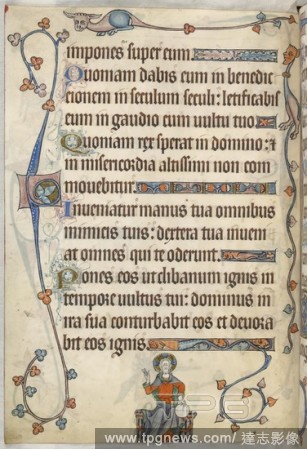 impones super eum
Quoniam dabis eum in benedic
tionem in seculum seculi: letificabis
eum in gaudio cum uultu tuo
Quoniam rex sperat in domino: ⁊
in misericordia altissimi non com
mouebitur
Inueniatur manus tua omnibus
inimicis tuis: dextera tua inueni
at omnes qui te oderunt
Pones eos ut clibanum ignis in
tempore uultus tui: dominus in
ira sua conturbabit eos et deuora
bit eos ignis
TPG
www.tpgnews.com/ 達志影像